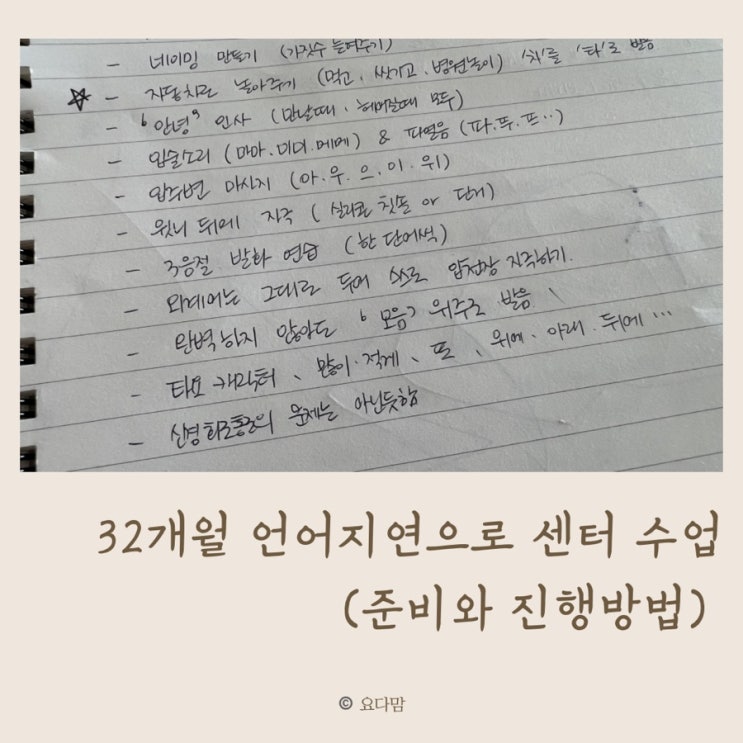 - 네이밍 만들기 (가짓수 늘려주기)
☆ - 자동차로 놀아주기 (먹고, 씻기고, 병원놀이) '차'를 '타'로 발음
- "안녕" 인사 (만날때, 헤어질때 모두)
- 입술소리 (마마.미미.메메) & 파열음 (파.뚜.프..)
- 입주변 마사지 (아.우.으.이.위)
- 윗니 뒤에 자극 (실리콘 칫솔 or 단게)
- 3음절 발화 연습 (한 단어씩)
- 외계어는 그대로 두어 스스로 입천장 자극하기.
- 완벽하지 않아도 '모음' 위주로 발음
- 타요 캐릭터, 많이.적게, 또, 위에.아래.뒤에…
- 신경 의 문제는 아닌듯함
32개월 언어지연으로 센터 수업
(준비와 진행방법)
© 요다맘